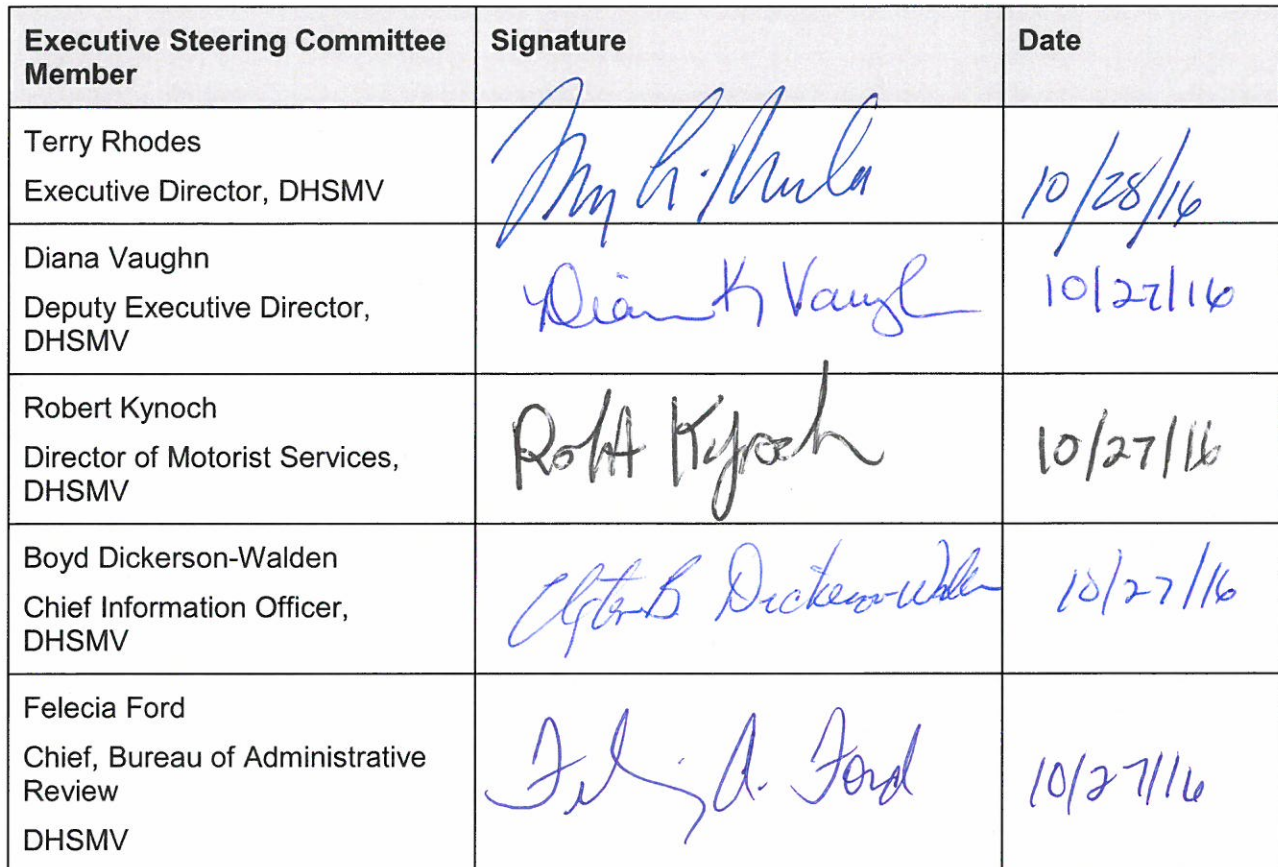 Executive Steering Committee Member
Signature
Date
Terry Rhodes
Executive Director, DHSMV
10/28/16
Diana Vaughn
Deputy Executive Director,
DHSMV
Diana K Vaughn
10/27/16
Robert Kynoch
Director of Motorist Services,
DHSMV
Robt Kynoch
10/27/16
Boyd Dickerson-Walden
Chief Information Officer,
DHSMV
B Dickerson-Walden
10/27/16
Felecia Ford
Chief, Bureau of Administrative
Review
DHSMV
A. Ford
10/27/16